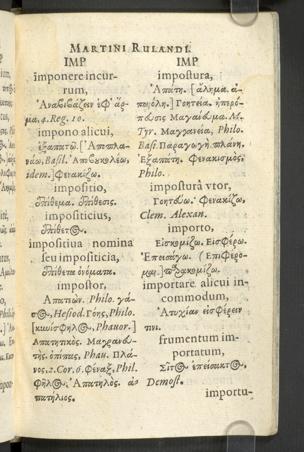 MARTINI RULANDI.
IMP
imponere incur-
rum,
Ἀναβιβάζειν ἐφ' ἅρ-
μα. 4. Reg. 10.
impono alicui,
ἐξαπατῶ. [Ἀποπλα-
νάω, Basil. Ἀποβουκολέω,
idem.] Φενακίζω.
impositio,
ἐπίθεμα. ἐπίθεσις.
impositicius,
ἐπίθετος.
impositiua nomina
seu impositicia,
ἐπίθετα ὀνόματα.
impostor,
Ἀπατεών. Philo. γό-
ης, Hesiod. Γόης, Philo.
Phauor.]
Ἀπατητικὸς.
Phau. Πλά-
νος. 2. Cor. 6. Φέναξ, Phil.
Φήλος, Ἀπατηλὸς. ἀ-
πατήλιος.
IMP
impostura,
Ἀπάτη. [ἄλημα. ἀ-
Γοητεία. ἠπερό-
M.
Tyr. Μαγγανεία, Philo.
Bas. Παραγωγὴ. πλάνη.
Ἐξαπάτη. Φενακισμὸς.
Philo.
impostura vtor,
Γοητεύω. Φενακίζω,
Clem. Alexan.
importo,
Εἰσκομίζω. Εἰσφέρω.
Ἐπεισάγω. (Ἐπιφέρο-
μαι.) προσκομίζω.
importare alicui in-
commodum,
Ἀτυχίαν εἰσφέρειν
τινι.
frumentum im-
portatum,
Σῖτος ἐπείσακτος,
Demost.
importu-